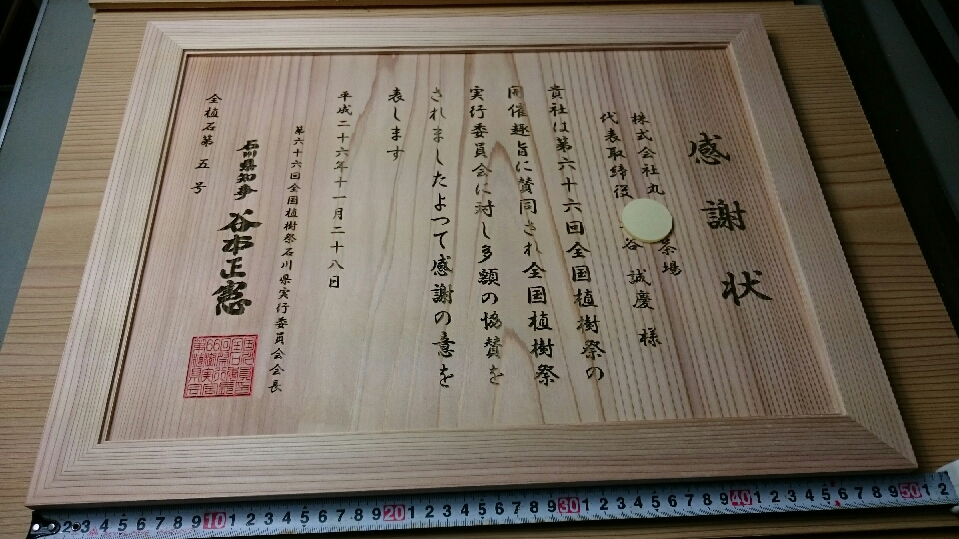 感謝状
株式会社丸
茶場
代表取締役
谷誠慶様
貴社は第六十六回全国植樹祭の
開催趣旨に賛同され全国植樹祭
実行委員会に対し多額の協賛を
されましたよつて感謝の意を
表します
平成二十六年十一月二十八日
第六十六回全国植樹祭石川県実行委員会会長
石川県知事 谷本正憲
全植石第五号
2 3 4 5 6 7 8 9 10 1 2 3 4 5 6 7 8 9 20 1 2 3 4 5 6 7 8 9 30 1 2 3 4 5 6 7 8 9 40 1 2 3 4 5 6 7 8 9 50 1 2